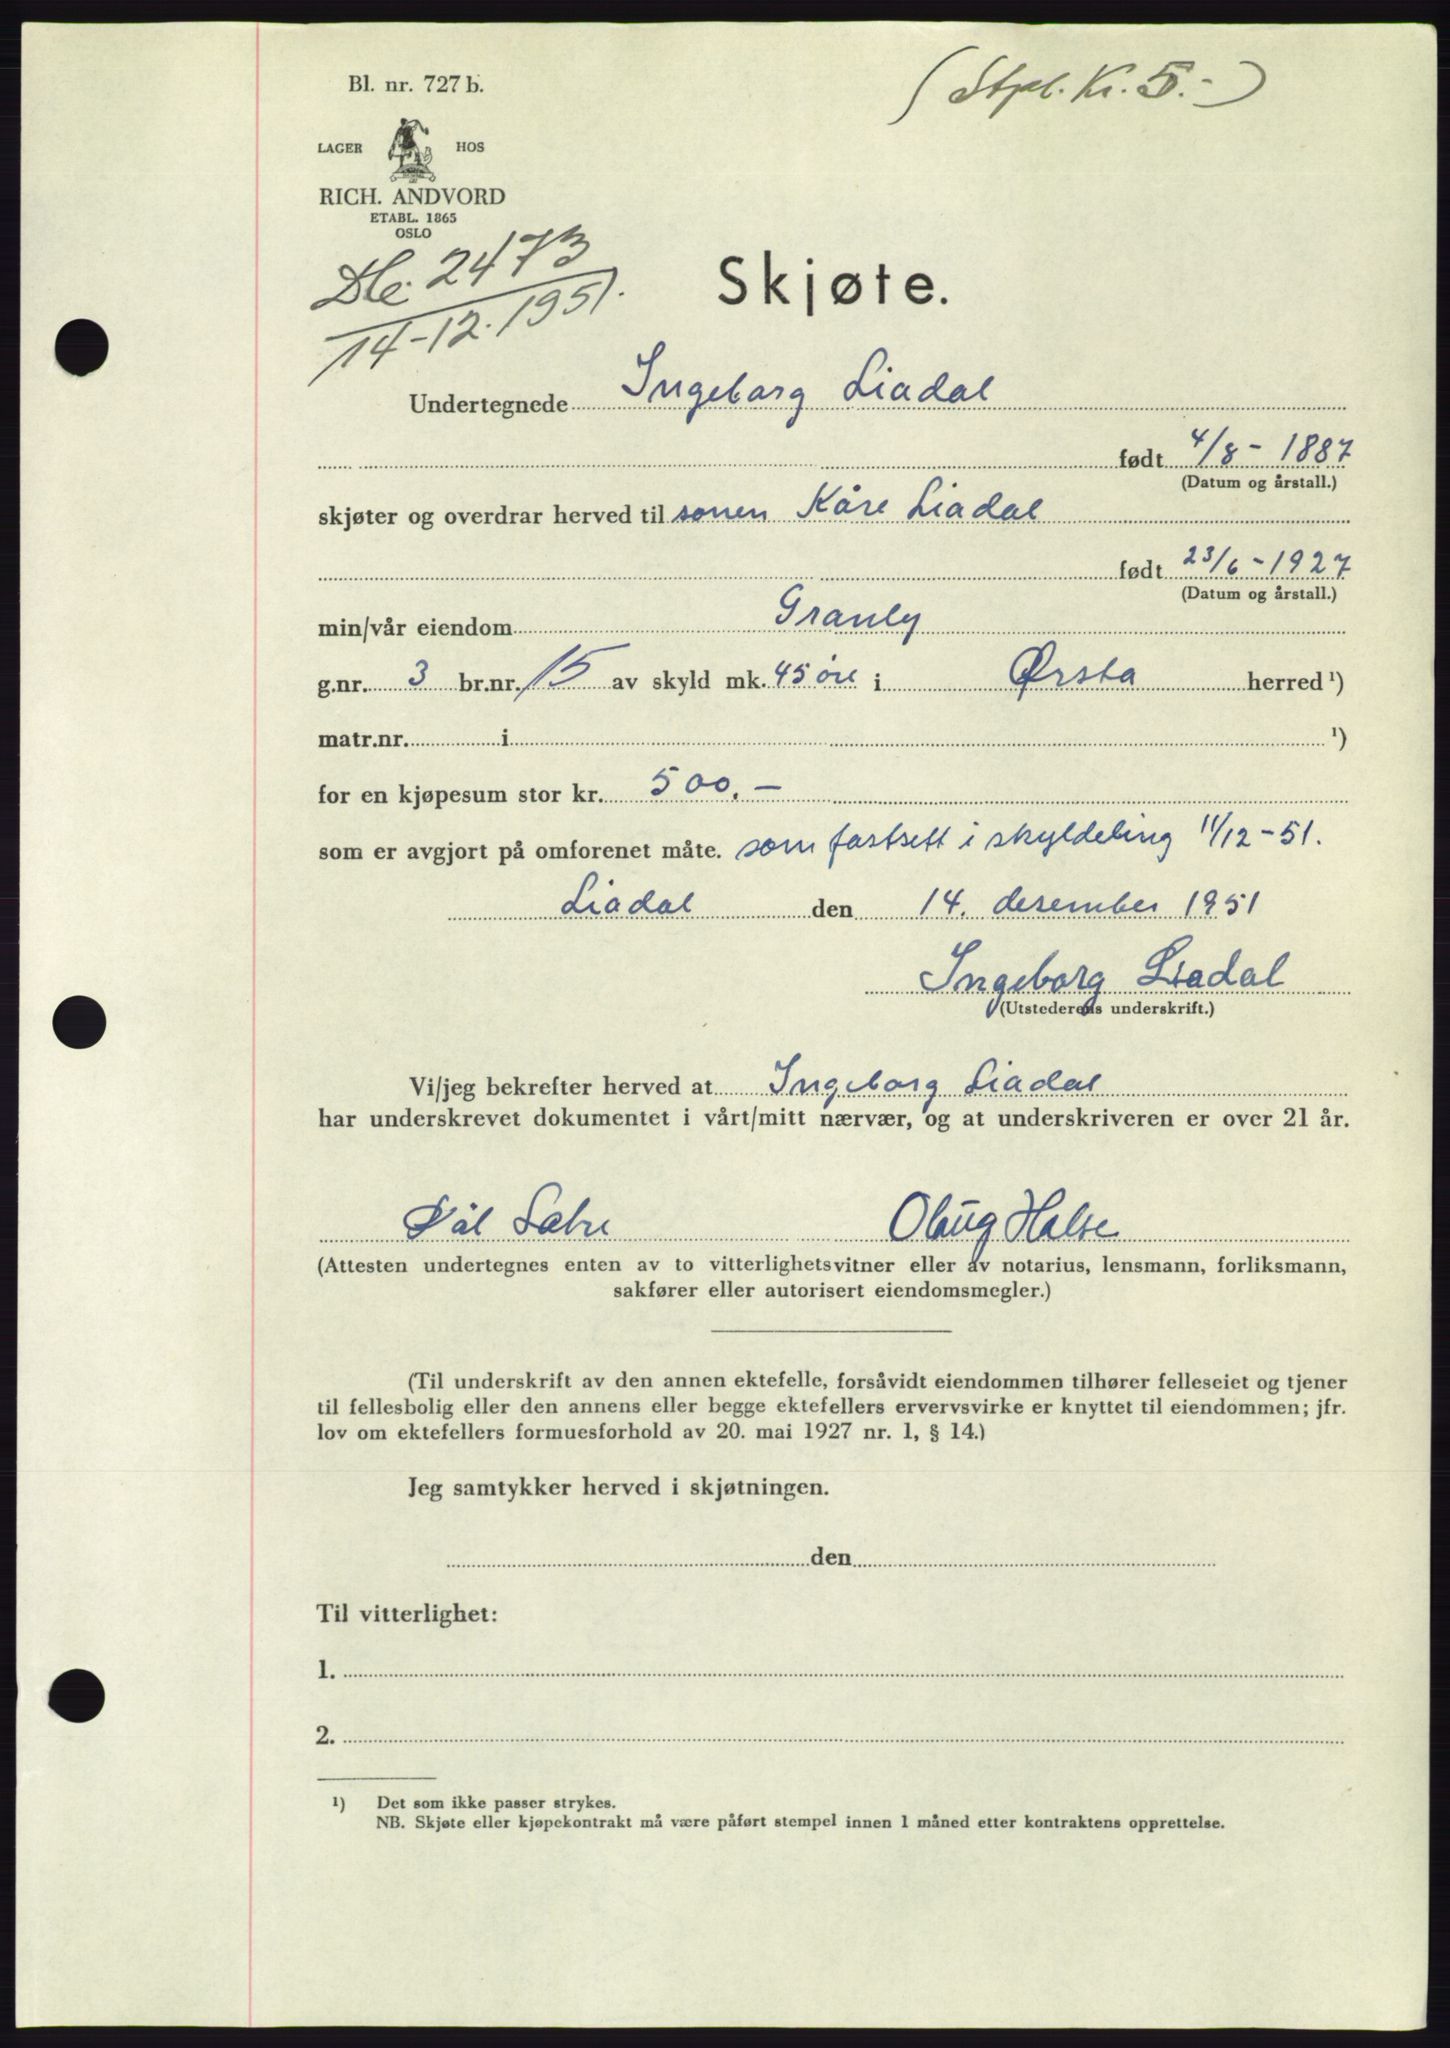 Bl. nr. 727 b.
(Stpl. Kr. 5.-)
LAGER HOS
RICH. ANDVORD
ETABL. 1865
OSLO
2473
14-12.1951.
Skjøte.
Undertegnede Ingeborg Liadal
født 4/8-1887
(Datum og årstall.)
skjøter og overdrar herved til sonen Kåre Liadal
født 23/6-1927
(Datum og årstall.)
min/vår eiendom Granly
g.nr. 3 br.nr. 15 av skyld mk. 45 öre i Ørsta herred ¹)
matr.nr. i ¹)
for en kjøpesum stor kr. 500.-
som er avgjort på omforenet måte. som fastsett i skyldeling 11/12-51.
Liadal den 14. desember 1951
Ingeborg Liadal
(Utstederens underskrift.)
Vi/jeg bekrefter herved at Ingeborg Liadal
har underskrevet dokumentet i vårt/mitt nærvær, og at underskriveren er over 21 år.
Pål Sætre Olaug Halse
(Attesten undertegnes enten av to vitterlighetsvitner eller av notarius, lensmann, forliksmann,
sakfører eller autorisert eiendomsmegler.)
(Til underskrift av den annen ektefelle, forsåvidt eiendommen tilhører felleseiet og tjener
til fellesbolig eller den annens eller begge ektefellers ervervsvirke er knyttet til eiendommen; jfr.
lov om ektefellers formuesforhold av 20. mai 1927 nr. 1, § 14.)
Jeg samtykker herved i skjøtningen.
den
Til vitterlighet:
1.
2.
¹) Det som ikke passer strykes.
NB. Skjøte eller kjøpekontrakt må være påført stempel innen 1 måned etter kontraktens opprettelse.